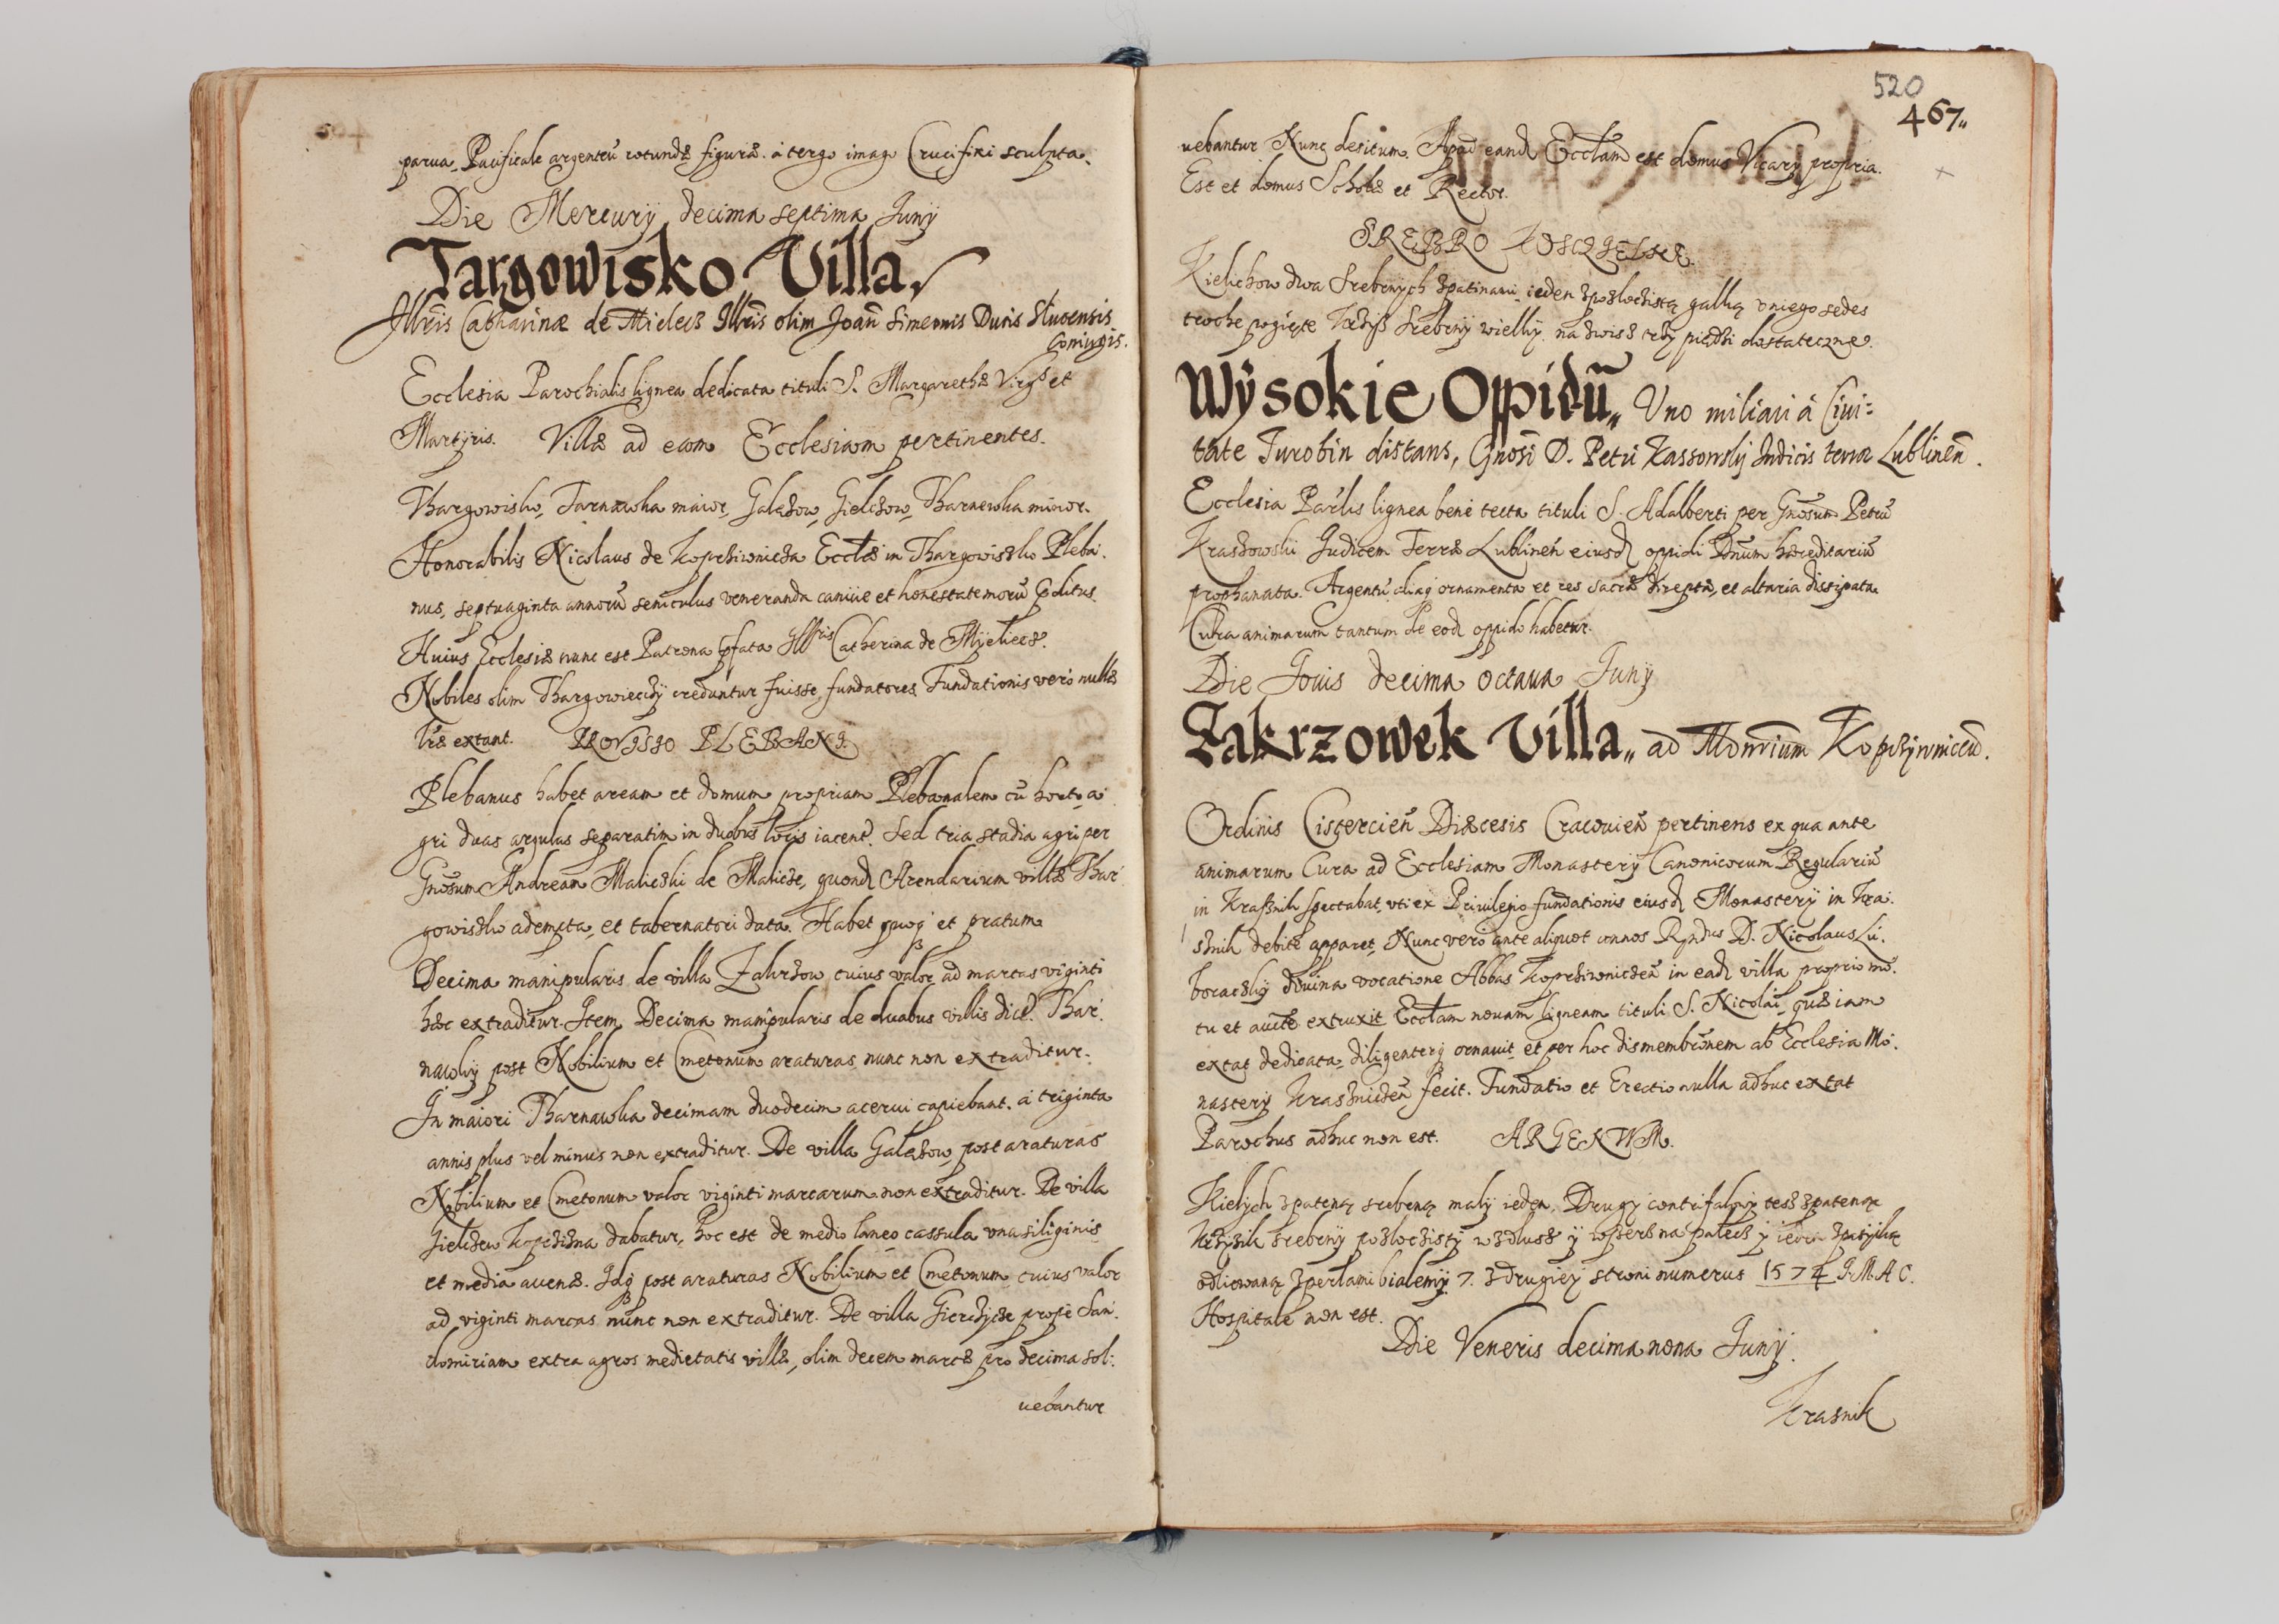 parua, Pacificale argenteũ rotundæ figuræ. à tergo imago Crucifixi sculpta.
Die Mercurÿ decima septima Junÿ
Targowisko Villa
Illris Catharinæ de Mielecz Illris olim Joañ Simeonis Ducis Slucensis
Coniugis.
Ecclesia Parochialis lignea dedicata tituli S. Margarethæ Virgs et
Martÿris. Villæ ad eam Ecclesiam pertinentes.
Thargowisko, Tarnawka maior, Galęzow, Gielczow, Tharnewka minor.
Honorabilis Nicolaus de Koprziwnicza Eccłæ in Thargowisko Pleba:
nus, septuaginta annorũ seniculus veneranda canitie et honestate morũ pditus.
Huius Ecclesiæ nunc est Patrona pfata Illris Catherina de Mÿelecz.
Nobiles olim Thargowieczÿ creduntur fuisse fundatores, Fundationis verò nullæ
lræ extant. PROVISIO PLEBANI.
Plebanus habet aream et domum propriam Plebanalem cũ horto, a:
gri duas argulas separatim in duobus locis iacent. Sed tria stadia agri per
Gnosum Andream Maliczki de Malicze, quond Arendarium villæ Thar:
gowisko adempta, et tabernatori data. Habet quoq et pratum
Decima manipularis de villa Zakrzow, cuius valor ad marcas viginti
hæc extraditur. Item Decima manipularis de duabus villis dict. Thar:
nawky post Nobilium et Cmetonum araturas nunc non extraditur.
In maiori Tharnawka decimam duodecim acerui capiebant. à triginta
annis plus vel minus non extraditur. De villa Galęzow post araturas
Nobilium et Cmetonum valor viginti marcarum non extraditur. De villa
Gielczew Kopczizna dabatur, hoc est de medio laneo cassula una siliginis
et media auenæ. Idq post araturas Nobilium et Cmetonum cuius valor
ad viginti marcas nunc non extraditur. De villa Gierczÿcze propè San:
domiriam extra agros medietatis villæ, olim decem marcæ pro decima sol:
uebantur
520
467
uebantur Nunc desitum. Apud eand Ecclam est domus Vicarÿ propria.
Est et domus Scholæ et Rector.
SREBRO KOSCZIELNE.
Kielichow dwa Srebrnÿch zpatinami, ieden zpozłocżistą gałką v niego sedes
troche pogięte Krziż Srebrnÿ wielkÿ na zwisz trzÿ piędzi dostateczne.
Wÿsokie Oppidũ Uno miliari à Ciui:
tate Turobin distans, Gnosi D. Petri Kassowskÿ Iudicis terræ Lublineñ.
Ecclesia Parlis lignea benè tecta tituli S. Adalberti per Gnosum Petrũ
Kraszowski Judicem Terræ Lublineñ eiusd oppidi Dnum hæreditariũ
prophanata. Argentũ aliaq ornamenta et res sacræ direptæ, et altaria dissipata.
Cura animarum tantum de eod oppido habetur.
Die Jouis decima octaua Junÿ
Zakrzowek Villa ad Monrium Koprzÿwniceñ.
Ordinis Cistercieñ Diæcesis Cracouieñ pertinens ex qua ante
animarum Cura ad Ecclesiam Monasterÿ Canonicorum Regulariũ
in Kraßnik spectabat, vti ex Priuilegio fundationis eiusd Monasterÿ in Kra:
snik debitè apparet, Nunc verò ante aliquot annos Rndus D. Nicolaus Lu:
boraczkÿ diuina vocatione Abbas Koprziwniczeñ in ead villa proprio mo:
tu et aucte extruxit Ecclam nouam ligneam tituli S. Nicolai, quæ iam
extat dedicata, diligenterq ornauit, et per hoc dismembrõnem ab Ecclesia Mo:
nasterÿ Krasniczeñ fecit. Fundatio et Erectio nulla adhuc extat
Parochus adhuc non est. ARGENTVM.
Kielÿch zpateną srebrną małÿ ieden. Drugÿ contrifałowÿ tesz zpateną
Krzÿżik srebrnÿ pozłocżistÿ wzdłusz ÿ wszersz na palecz ÿ ieden
odliewaną zperłami białemÿ 7. z drugieÿ stroni numerus 1574 J. M. A C.
Hospitale non est.
Die Veneris decima nona Junÿ.
Krasnik